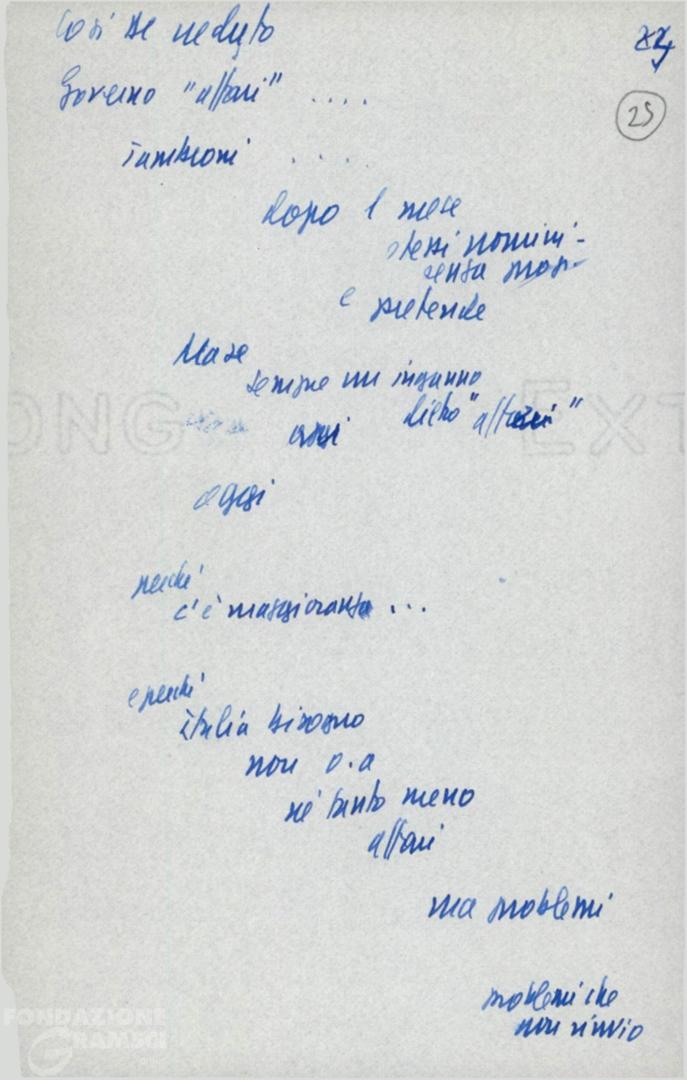 Così se veduto
25
Governo "affari" ....
Tambroni ....
dopo 1 mese
stessi uomini -
senza
e pretende
Ma se
sempre un inganno
dietro "affari"
oggi
perché
c'è maggioranza ...
e perché
italia bisogno
non o.a
né tanto meno
affari
ma problemi
problemi che
non rinvio
ONG EXT
FONDAZIONE
GRAMSCI